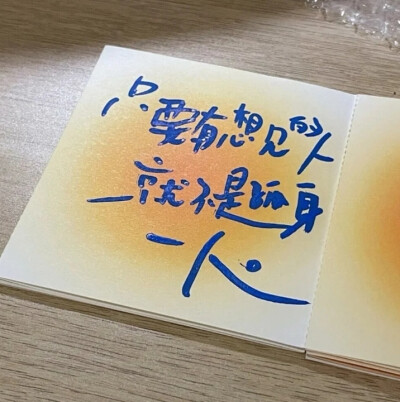 只要有想见的人
就不是孤身
一人。